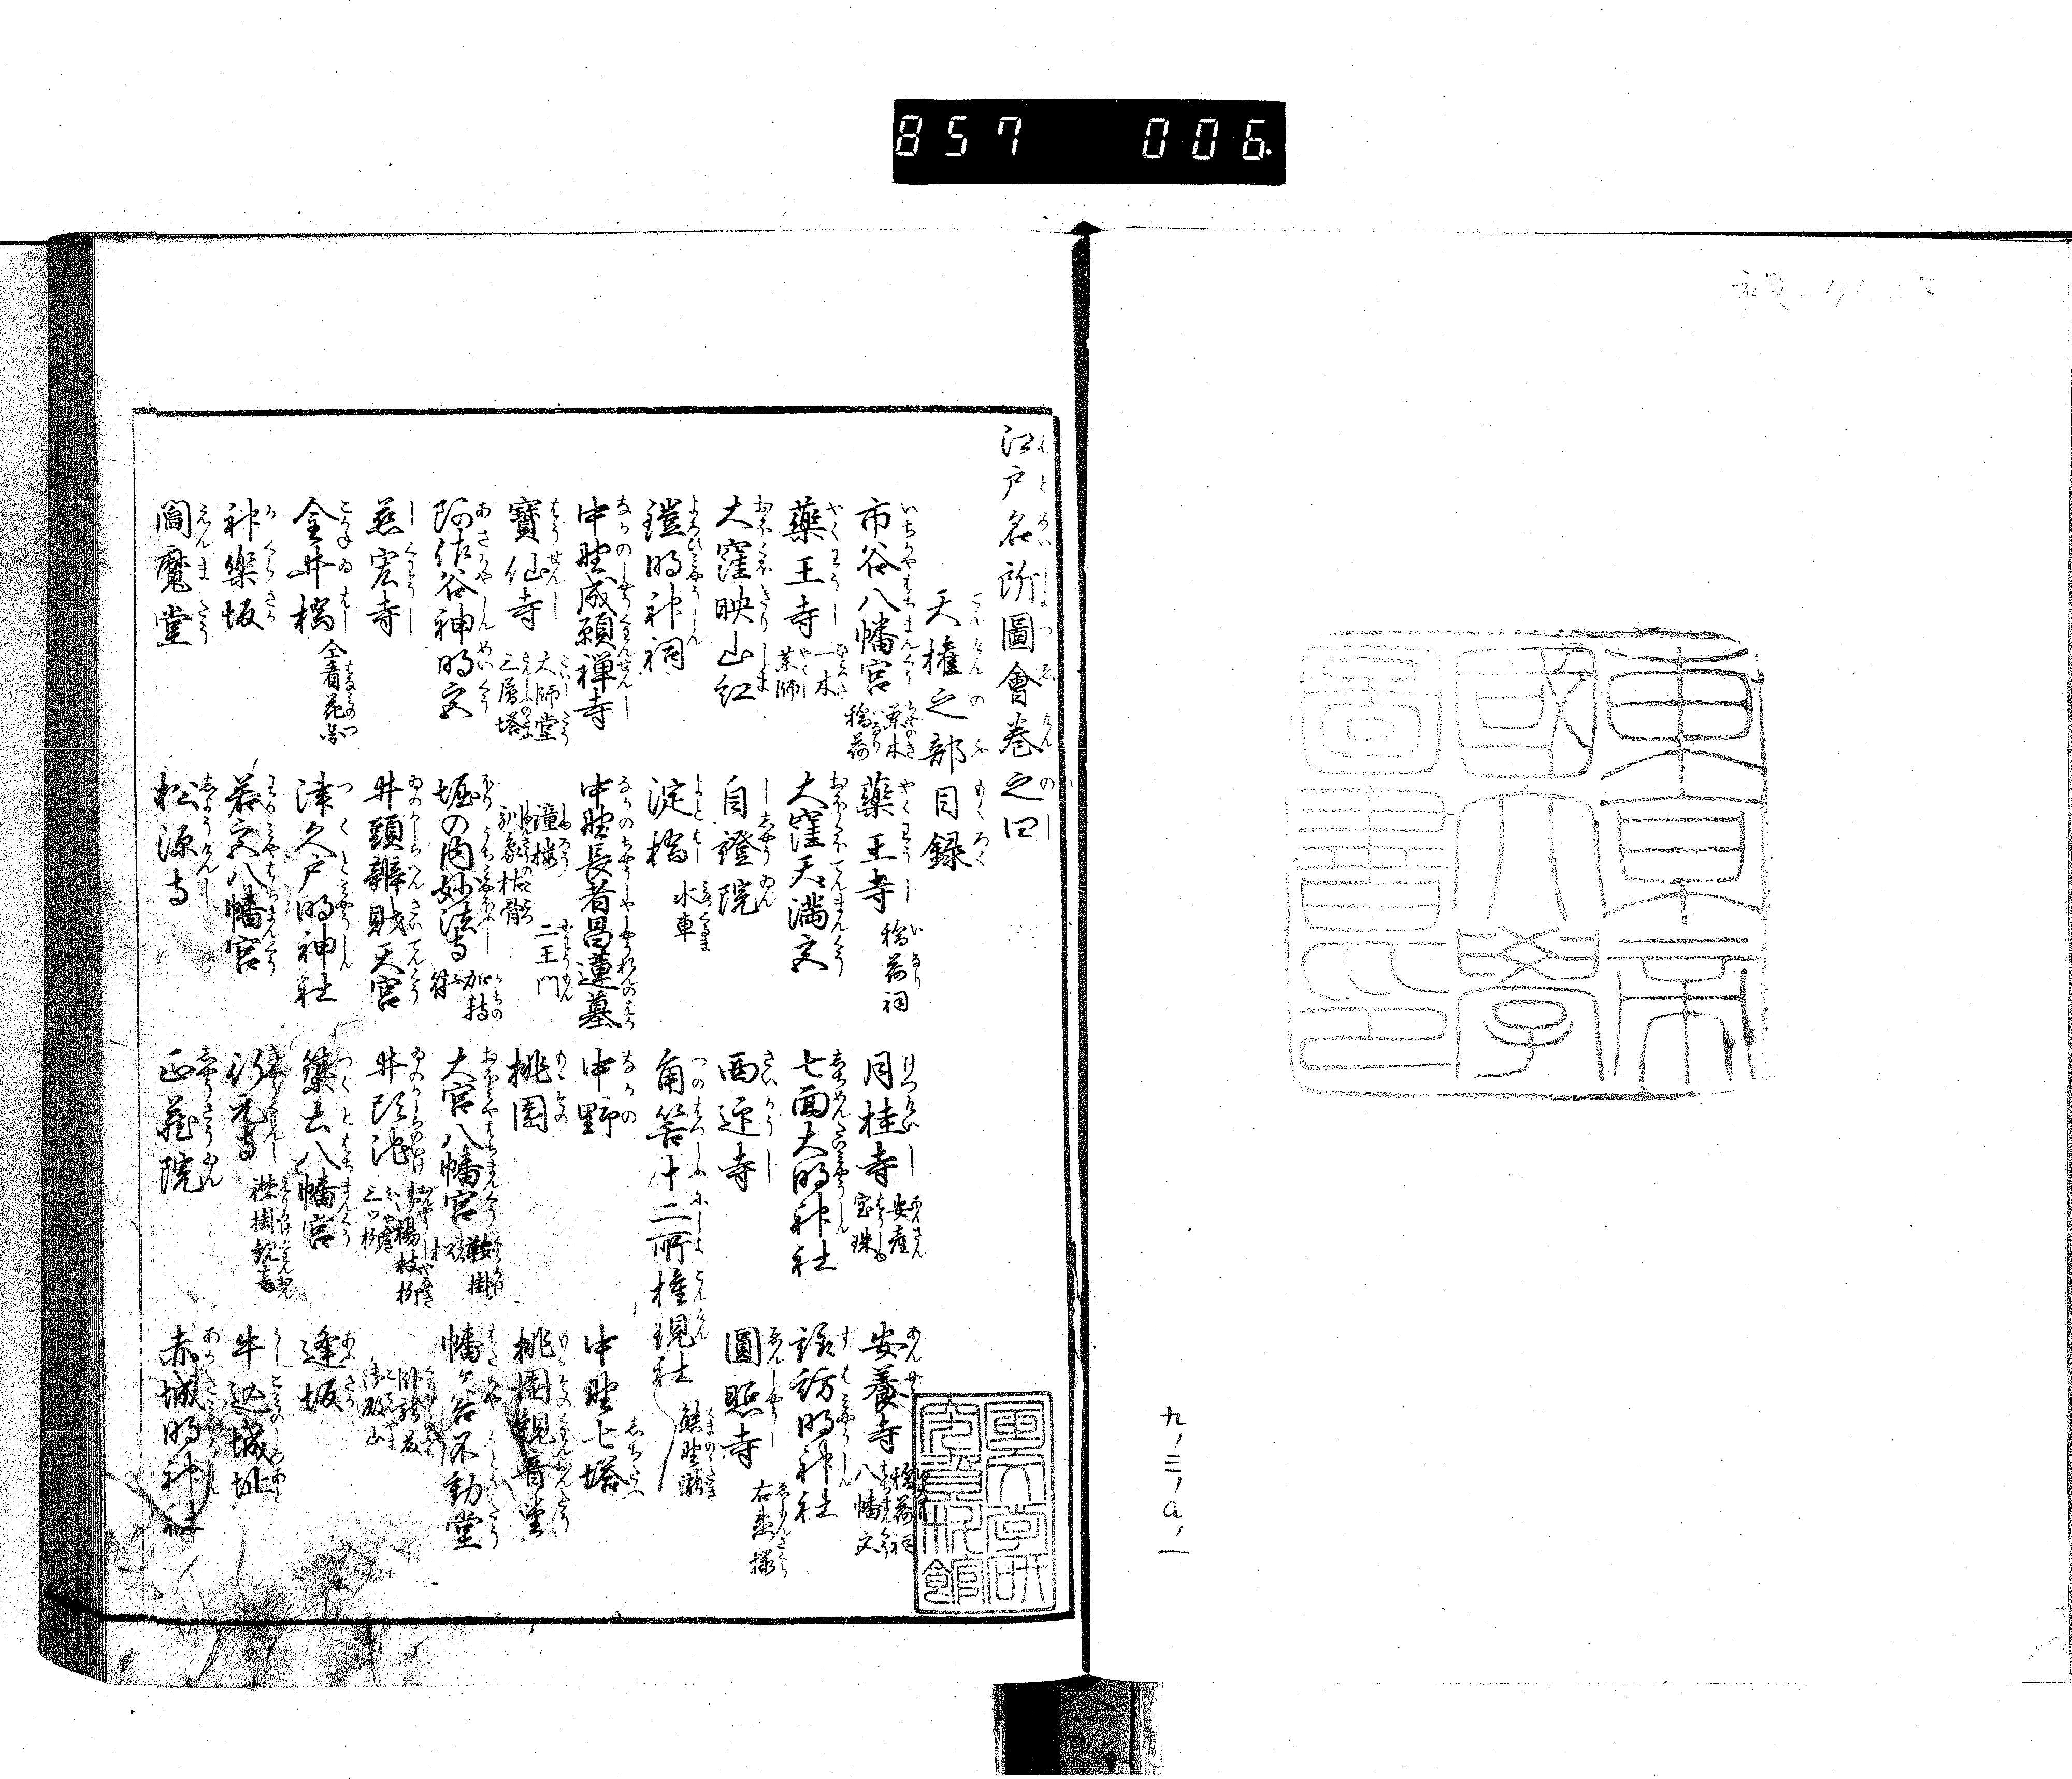 857 006
東京帝國大學圖書印
九、三、a、一
江戸名所圖會巻之四
天權之部目録
市谷八幡宮 茶木稲荷
藥王寺 稲荷祠
月桂寺 安産宝珠
安養寺 稲荷祠 八幡宮
藥王寺 一木薬師
大窪天満宮
七面大明神社
諏訪明神社
大窪映山紅
自證院
西迎寺
圓照寺 右衛門櫻
鎧明神祠
淀橋 水車
角筈十二所権現社 熊野瀧
中野成願禅寺
中野長者昌蓮墓
中野
中野七塔
寶仙寺 大師堂 三層塔 鐘楼 馴象枯骨 二王門
桃園
桃園観音堂
阿佐谷神明宮
堀の内妙法寺 加持符
大宮八幡宮 鞍掛松
幡ヶ谷不動堂
慈宏寺
井頭辨財天宮
井頭池 楊枝柳 三ツ柳 御殿山
金井橋 全看花図
津久戸明神社
築土八幡宮
逢坂
神樂坂
若宮八幡宮
行元寺 襟掛観音
牛込城址
閻魔堂
松源寺
正蔵院
赤城明神社